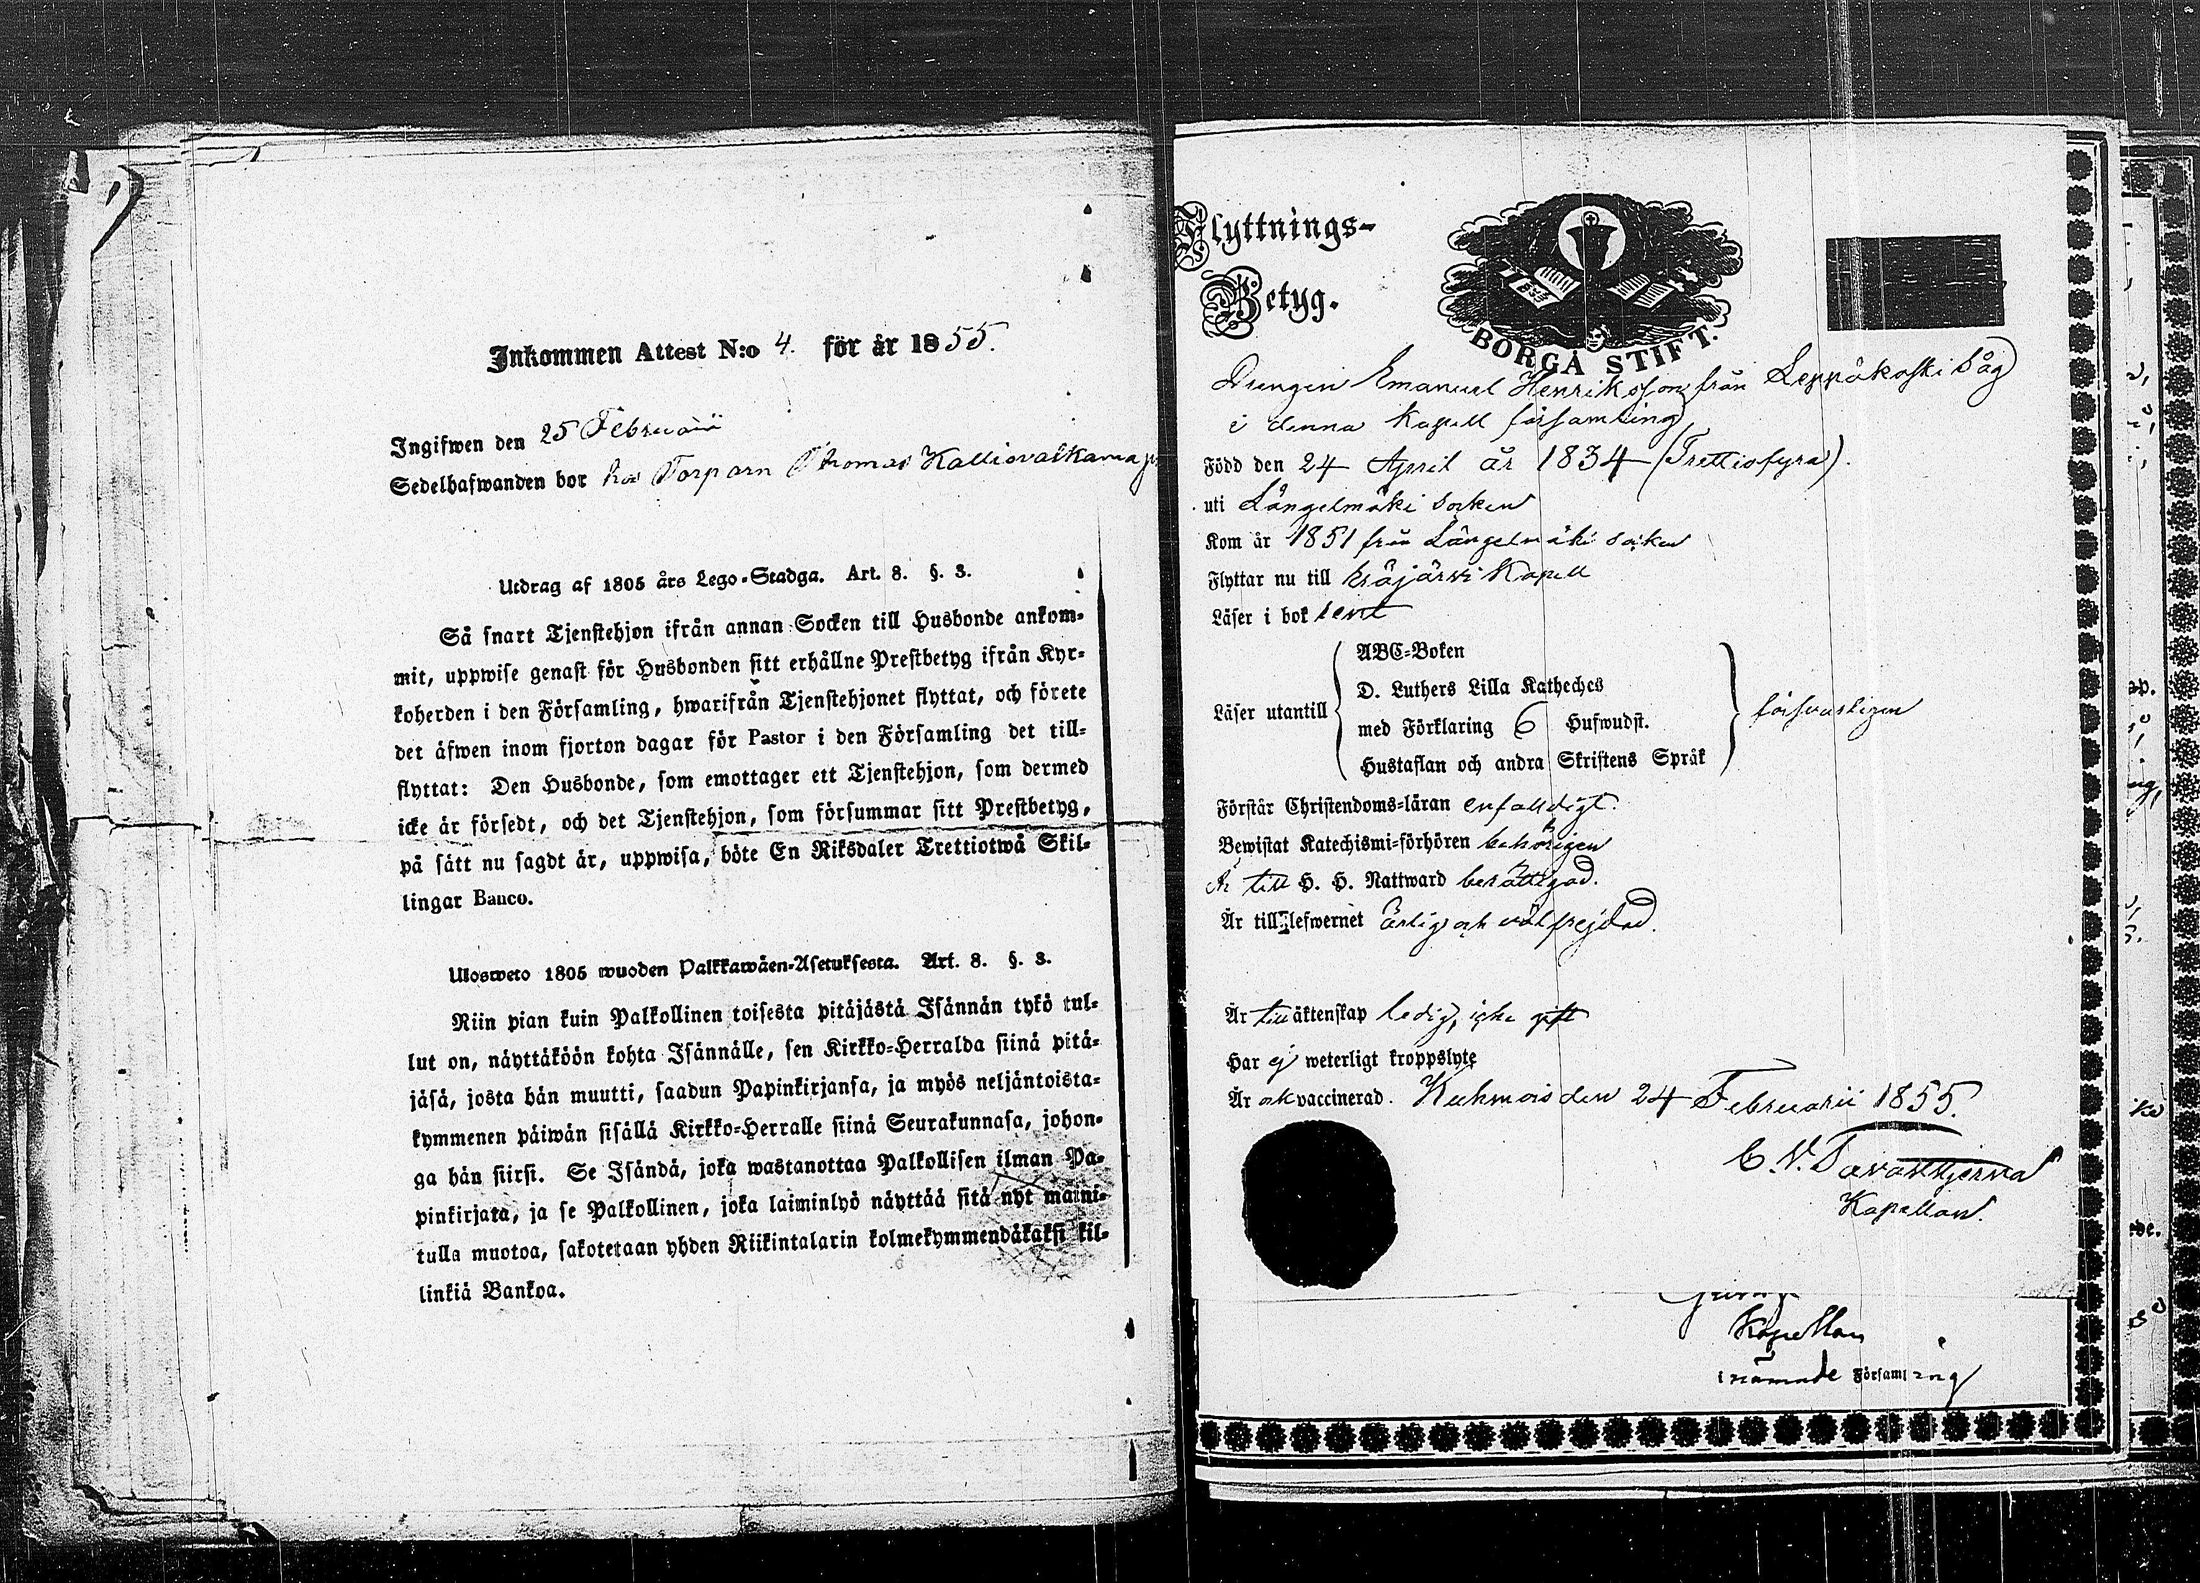 Inkommen Attest N:o 4. för år 1855.
Ingifwen den 25 Februarii
Sedelhafwanden bor hos Torparn Thomas Kalliovalkama
Utdrag af 1805 års Lego-Stadga. Art. 8. §. 3.
Så snart Tjenstehjon ifrån annan Socken till Husbonde ankom-
mit, uppwise genast för Husbonden sitt erhållne Prestbetyg ifrån Kyr-
koherden i den Församling, hwarifrån Tjenstehjonet flyttat, och förete
det äfwen inom fjorton dagar för Pastor i den Församling det till-
flyttat: Den Husbonde, som emottager ett Tjenstehjon, som dermed
icke är försedt, och det Tjenstehjon, som försummar sitt Prestbetyg,
på sätt nu sagdt är, uppwisa, böte En Riksdaler Trettiotwå Skil-
lingar Banco.
Ulosweto 1805 wuoden Palkkawäen-Asetuksesta. Art. 8. §. 3.
Niin pian kuin Palkollinen toisesta pitäjästä Isännän tykö tul-
lut on, näyttäköön kohta Isännälle, sen Kirkko-Herralda siinä pitä-
jäsä, josta hän muutti, saadun Papinkirjansa, ja myös neljäntoista-
kymmenen päiwän sisällä Kirkko-Herralle siinä Seurakunnasa, johon-
ga hän siirsi. Se Isändä, joka wastanottaa Palkollisen ilman Pa-
pinkirjata, ja se Palkollinen, joka laiminlyö näyttää sitä nyt maini-
tulla muotoa, sakotetaan yhden Riikintalarin kolmekymmendäkaksi kil-
linkiä Bankoa.
Flyttnings-
Betyg.
BORGÅ STIFT.
Drengen Emanuel Henriksson från Leppäkoski Såg
i denna Kapell församling
Född den 24 April år 1834 (Trettiofyra).
uti Längelmäki Socken
Kom år 1851 från Längelmäki socken
Flyttar nu till Eräjärvi Kapell
Läser i bok rent
Läser utantill
ABC-Boken
D. Luthers Lilla Katheches
med Förklaring 6 Hufwudst.
Hustaflan och andra Skriftens Språk
försvarligen
Förstår Christendoms-läran enfaldigt.
Bewistat Katechismi-förhören behörigen
Är till H. H. Nattward berättigad.
Är till lefwernet ärlig och välfrejdad.
Är till äktenskap ledig, icke gift
Har ej weterligt kroppslyte
Är ok vaccinerad. Kuhmois den 24 Februarii 1855.
C. N. Tavaststjerna
Kapellan.
Kapellan
i nämnde Församling